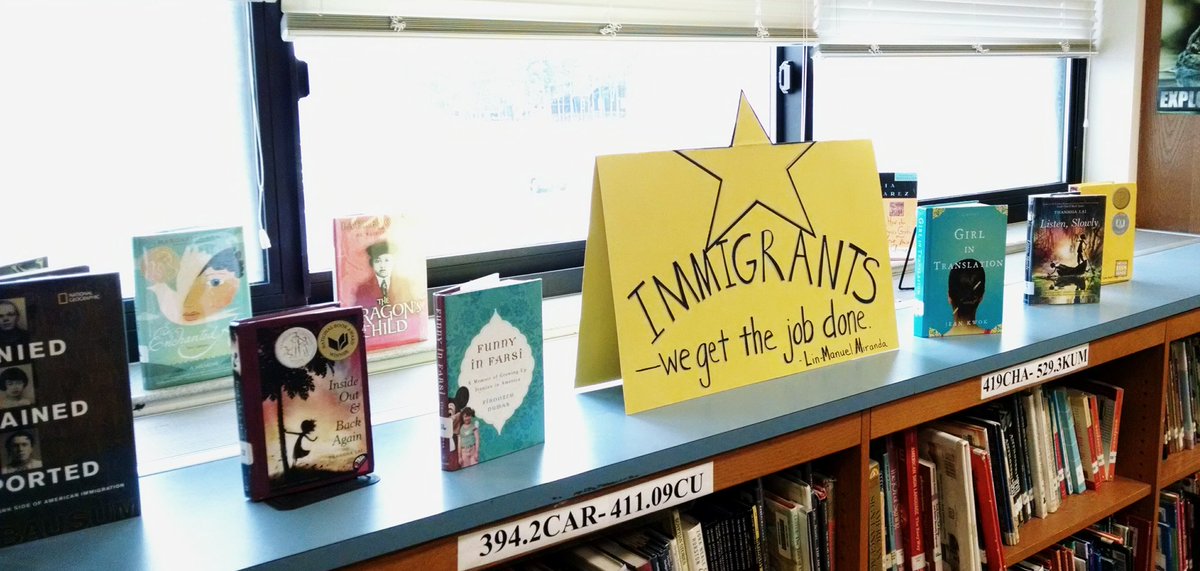 NATIONAL GEOGRAPHIC
NIED
AINED
PORTED
SIDE OF AMERICAN IMMIGRATION
BAUSUM
Enchanted
Inside
Out
&
Back
Again
THE
DRAGON'S
CHILD
FUNNY IN FARSI
FUNNY
in FARSI
A Memoir of Growing Up
Iranian in America
FIROOZEH
DUMAS
IMMIGRANTS
—we get the job done.
-Lin-Manuel Miranda
GIRL
IN
TRANSLATION
JEAN KWOK
THANHHA LAI
Listen, Slowly
EXPLO
394.2CAR- 411.09CU
419CHA- 529.3KUM